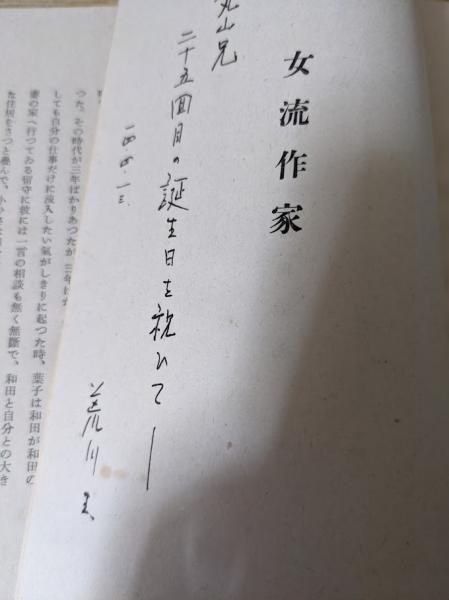 女流作家
丸山兄
二十五回目の誕生日を祝ひて―
一四・四・一三
荒川
つた。その時代が三年ばかりあつたが
しても自分の仕事だけに没入したい氣がしきりに起つた時、葉子は和田が和田の
妻の家へ行つてゐる留守に彼には一言の相談も無く無斷で、和田と自分との大き
な住居をさつと疊んで、